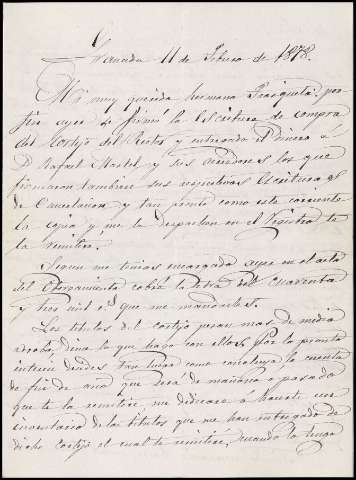 Granada 11 de Febrero de 1878.
Mi muy querida hermana Frasquita: por
fin ayer se firmó la Escritura de compra
del Cortijo del and entregado el dinero á
D. Rafael Martel y sus acreedores los que
firmaron tambien sus respectivas Escrituras
de Cancelacion y tan pronto como este corriente
la copia y me la despachen en el Registro te
la remitire.
Segun me tenias encargado ayer en el acto
del Otorgamiento cobré la letra de cuarenta
y tres mil r.s que me mandastes.
Los titulos del cortijo pesan mas de media
arroba, dime lo que hago con ellos por lo pronto
interin decides tan luego como concluya la cuenta
de fin de año que será de mañana á pasado
que te la remitire me dedicare á hacerte un
inventario de los titulos que me han entregado de
dicho cortijo el cual te remitire, cuando lo tenga